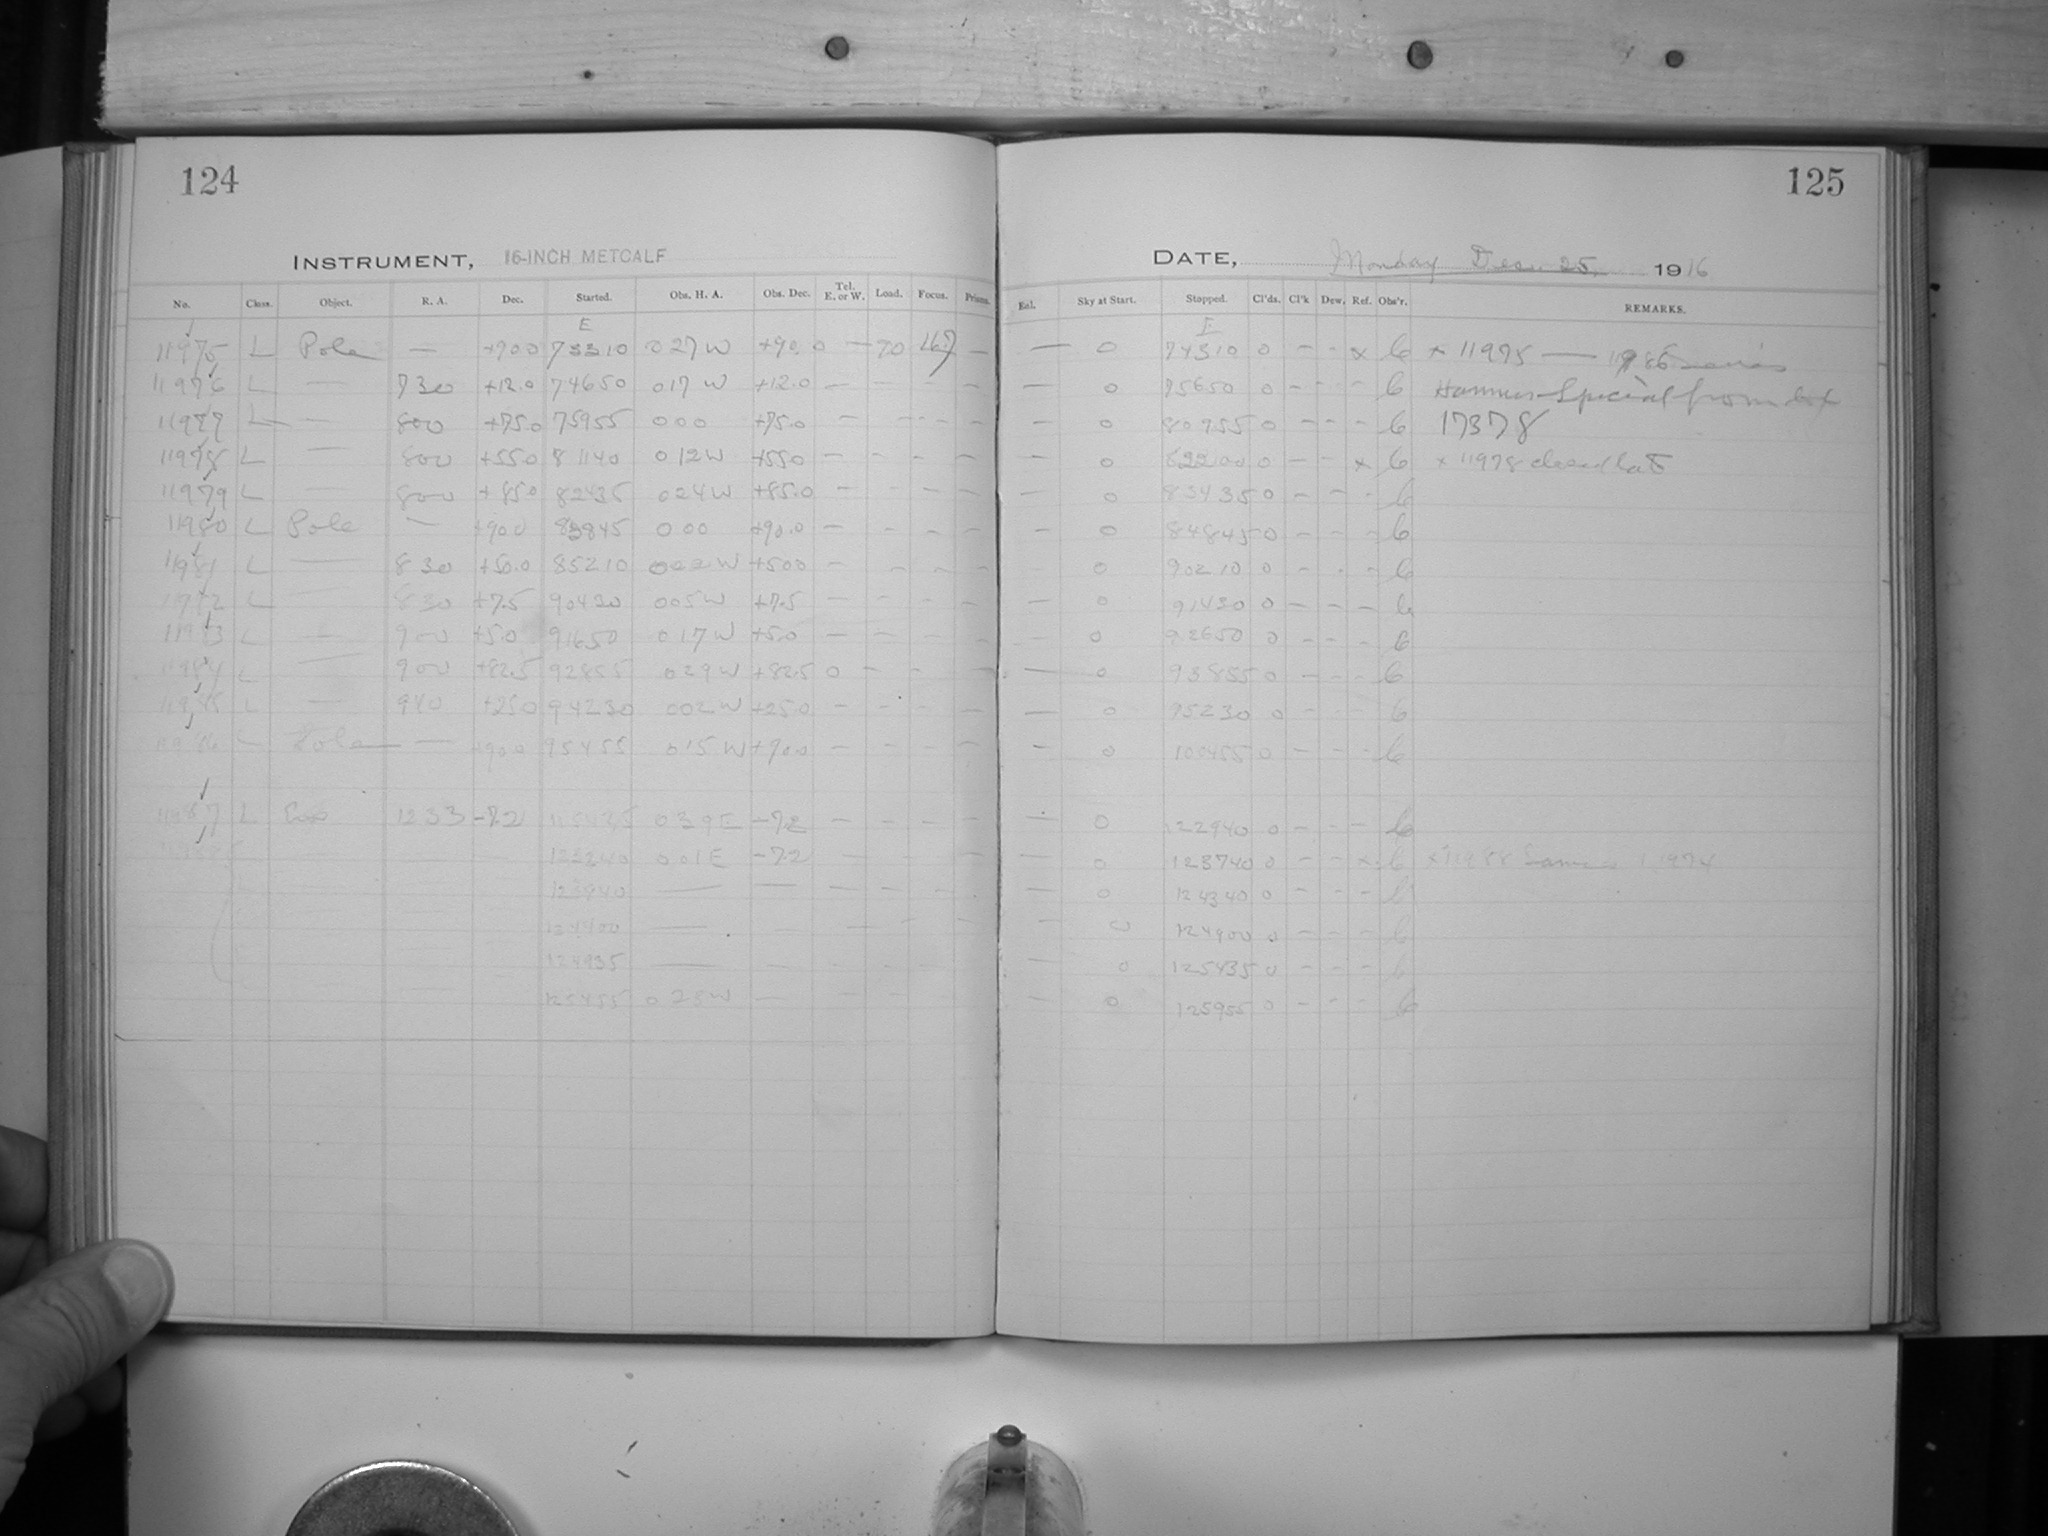 124
INSTRUMENT, 16-INCH METCALF
No. Class. Object. R. A. Dec. Started. Obs. H. A. Obs. Dec. Tel. E. or W. Load. Focus. Prisms.
E
11975 L Pole — +90.0 73310 027W +90.0 — 70 16.7 —
11976 L — 730 +12.0 74650 017W +12.0 — — — —
11977 L — 800 +75.0 75955 000 +75.0 — — — —
11978 L — 800 +55.0 81140 012W +55.0 — — — —
11979 L — 800 +85.0 82435 024W +85.0 — — — —
11980 L Pole — +90.0 83845 000 +90.0 — — — —
11981 L — 830 +50.0 85210 022W +50.0 — — — —
11982 L — 830 +7.5 90430 005W +7.5 — — — —
11983 L — 900 +5.0 91650 017W +5.0 — — — —
11984 L — 900 +82.5 92855 029W +82.5 0 — — —
11985 L — 940 +25.0 94230 002W +25.0 — — — —
11986 L Pole — +90.0 95455 015W +90.0 — — — —
11987 L 1233 -7.2 115435 039E -7.2 — — — —
11988 L 123240 001E -7.2 — — — —
123840 — — — — — —
124400 — — — — —
124935 — — — — — —
125455 025W — — — — —
125
DATE, Monday Dec 25, 1916
Enl. Sky at Start. Stopped. Cl'ds. Cl'k Dew. Ref. Obs'r. REMARKS.
E
— 0 74310 0 - - x C x 11975 — 11986 Series
— 0 75650 0 - - - C Hammer Special from box
— 0 80955 0 - - - C 17378
— 0 82200 0 - - x C x 11978 closed late
— 0 83435 0 - - - C
— 0 84845 0 - - - C
— 0 90210 0 - - - C
— 0 91430 0 - - - C
— 0 92650 0 - - - C
— 0 93855 0 - - - C
— 0 95230 0 - - - C
— 0 100455 0 - - - C
— 0 122940 0 - - - C
— 0 123740 0 - - x C x 11988 Same as 11974
— 0 124340 0 - - - C
— 0 124900 0 - - - C
— 0 125435 0 - - - C
— 0 125955 0 - - - C